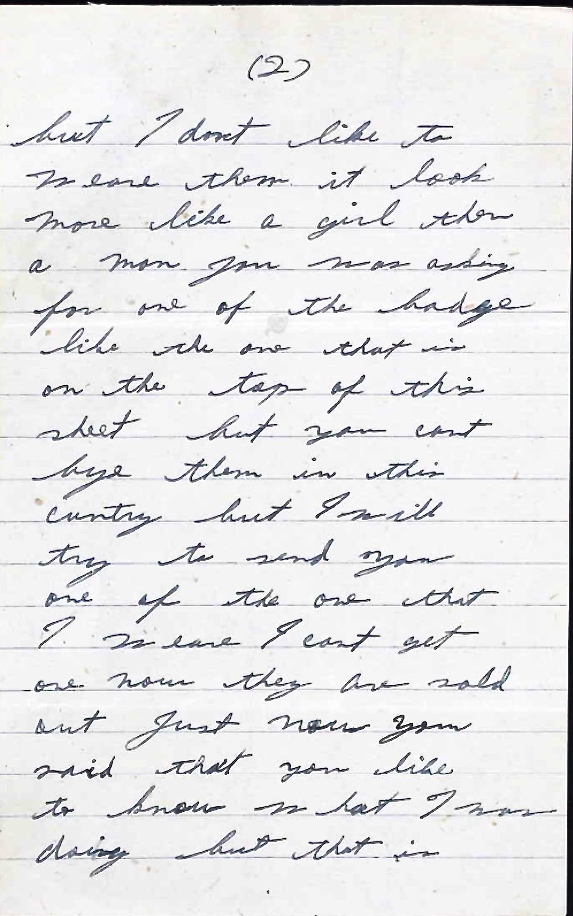 (2)
but I dont like to
weare them it look
more like a girl then
a man you was asking
for one of the badge
like the one that is
on the top of this
sheet but you cant
bye them in this
cuntry but I will
try to send you
one of the one that
I weare I cant get
one now they are sold
out Just now you
said that you like
to know what I was
doing but that is